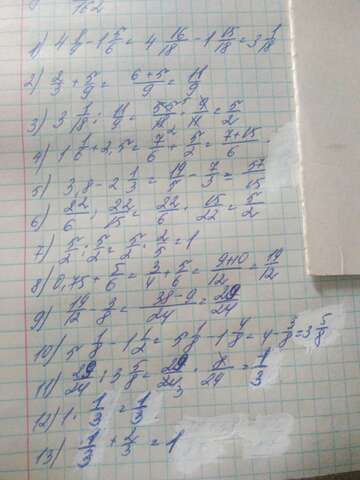 1) 4 8/9 - 1 5/6 = 4 16/18 - 1 15/18 = 3 1/18
2) 2/3 + 5/9 = 6+5/9 = 11/9
3) 3 1/18 : 11/9 = 55/18 · 9/11 = 5/2
4) 1 1/6 + 2,5 = 7/6 + 5/2 = 7+15/6
5) 3,8 - 2 1/3 = 19/5 - 7/3 = 57/15
6) 22/6 : 22/15 = 22/6 · 15/22 = 5/2
7) 5/2 : 5/2 = 5/2 · 2/5 = 1
8) 0,75 + 5/6 = 3/4 + 5/6 = 9+10/12 = 19/12
9) 19/12 - 3/8 = 38-9/24 = 29/24
10) 5 1/8 - 1 1/2 = 5 1/8 - 1 4/8 = 4 - 3/8 = 3 5/8
11) 29/24 : 3 5/8 = 29/24 · 8/29 = 1/3
12) 1 · 1/3 = 1/3
13) 1/3 + 2/3 = 1